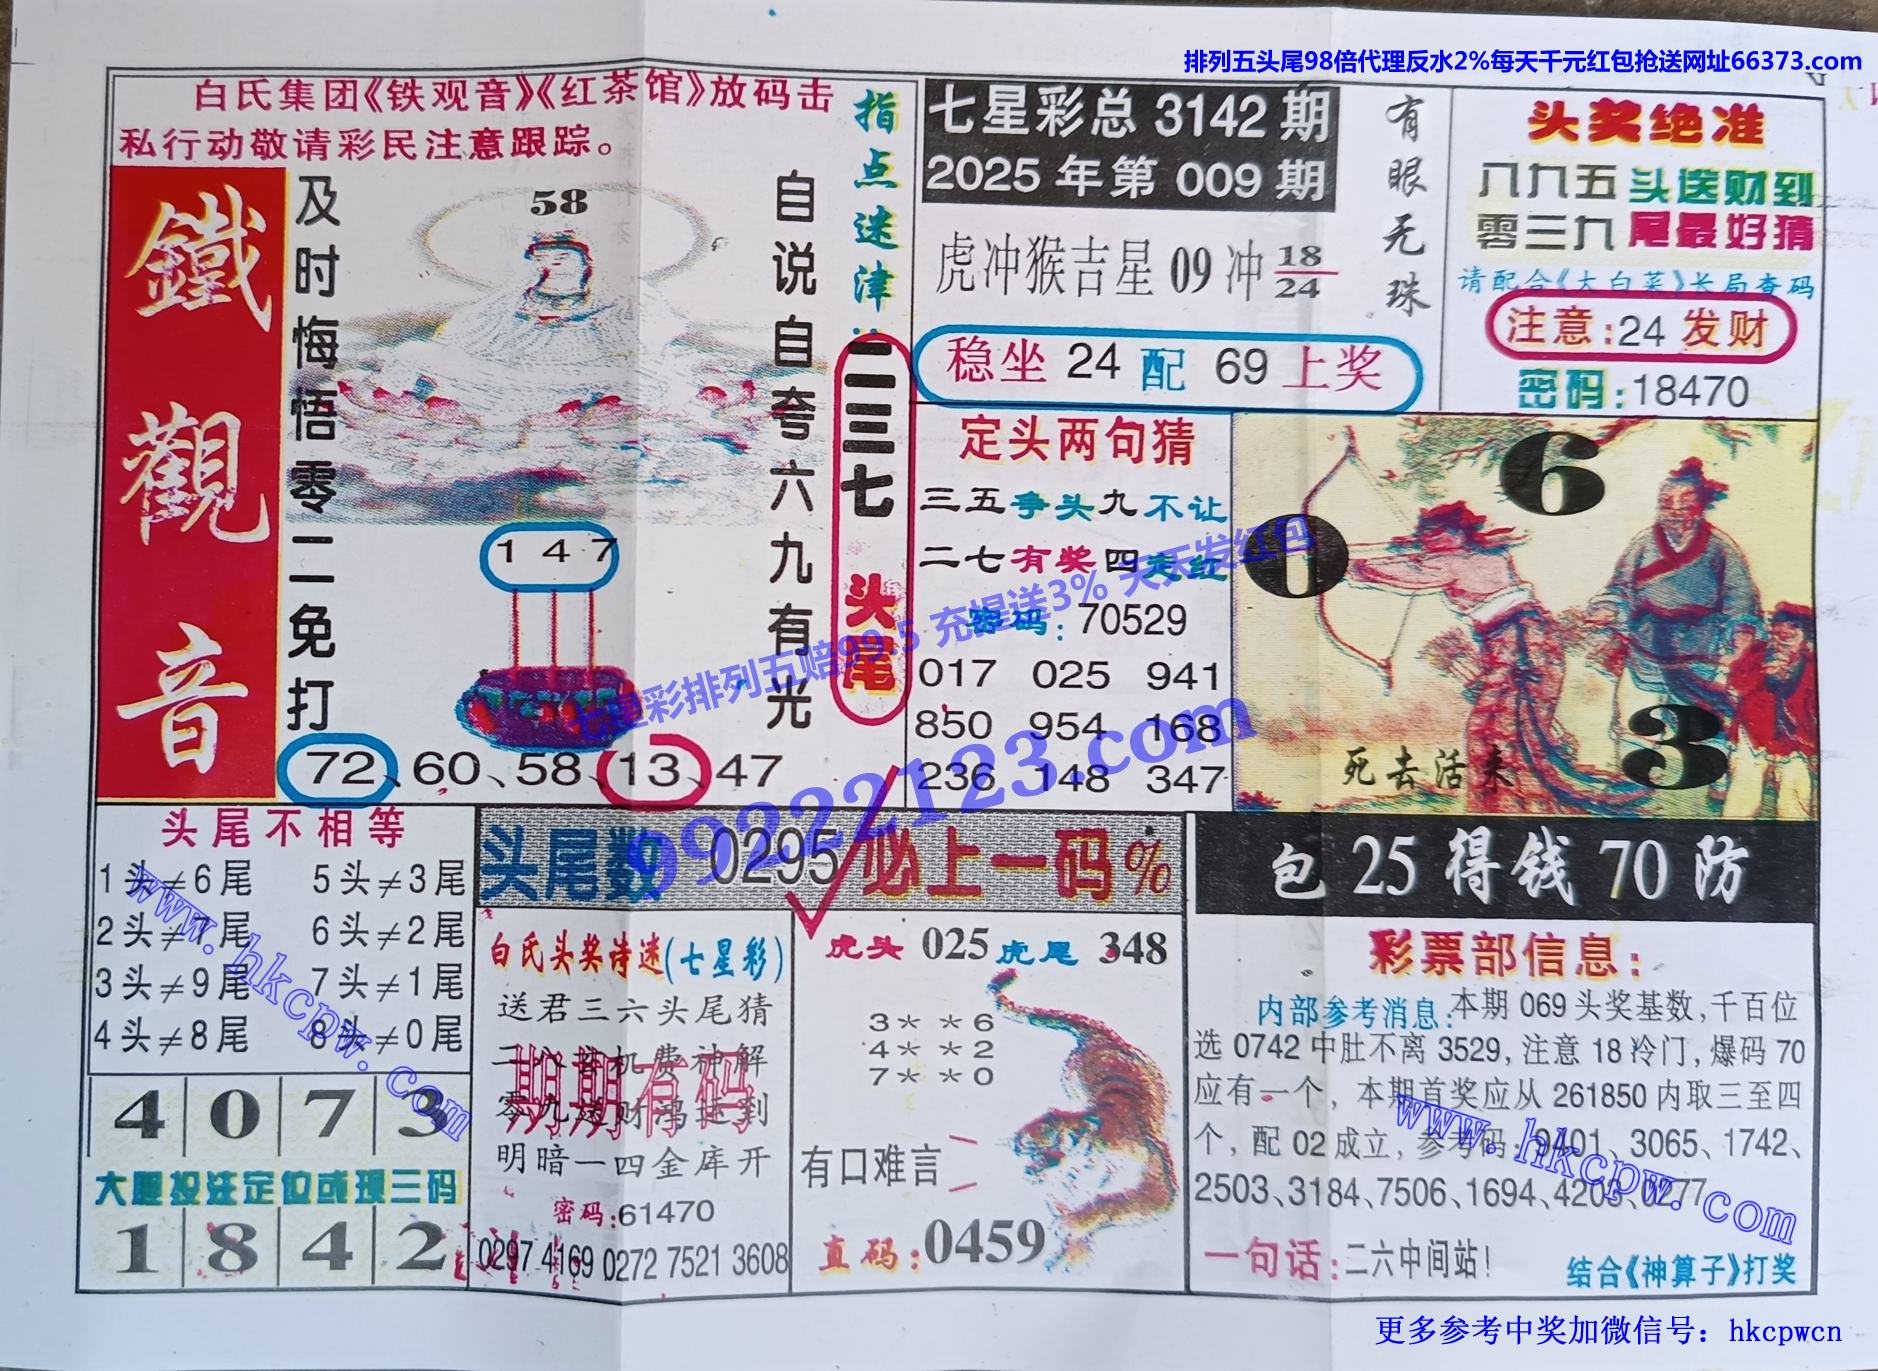 排列五头尾98倍代理反水2%每天千元红包抢送网址66373.com
白氏集团《铁观音》《红茶馆》放码击
私行动敬请彩民注意跟踪。
鐵觀音
及时悔悟零二免打
58
自说自夸六九有光
1 4 7
72、60、58、13、47
指点迷津
二三七 头尾
七星彩总 3142 期
2025 年第 009 期
虎冲猴吉星 09 冲 18/24
稳坐 24 配 69 上奖
有眼无珠
头奖绝准
八九五头送财到
零三九尾最好猜
请配合《大白菜》长局查码
注意:24 发财
密码:18470
定头两句猜
三五争头九不让
二七有奖四走红
密码:70529
017 025 941
850 954 168
236 148 347
6
0
3
死去活来
七星彩排列五赔99.5 充提送3% 天天发红包
99222123.com
头尾不相等
1头≠6尾 5头≠3尾
2头≠7尾 6头≠2尾
3头≠9尾 7头≠1尾
4头≠8尾 8头≠0尾
4 0 7 3
大胆投注定位或现三码
1 8 4 2
www.hkcpw.com
头尾数 0295 必上一码%
白氏头奖诗迷(七星彩)
送君三六头尾猜
机费神解
零九送财鸿运到
明暗一四金库开
期期有码
密码:61470
0297 4169 0272 7521 3608
虎头 025 虎尾 348
3* *6
4* *2
7* *0
有口难言
直码:0459
包 25 得钱 70 防
彩票部信息:
内部参考消息:本期 069 头奖基数,千百位
选 0742 中肚不离 3529,注意 18 冷门,爆码 70
应有一个，本期首奖应从 261850 内取三至四
个，配 02 成立，参考码:9401、3065、1742、
2503、3184、7506、1694、4203、0277
www.hkcpw.com
一句话:二六中间站!
结合《神算子》打奖
更多参考中奖加微信号：hkcpwcn